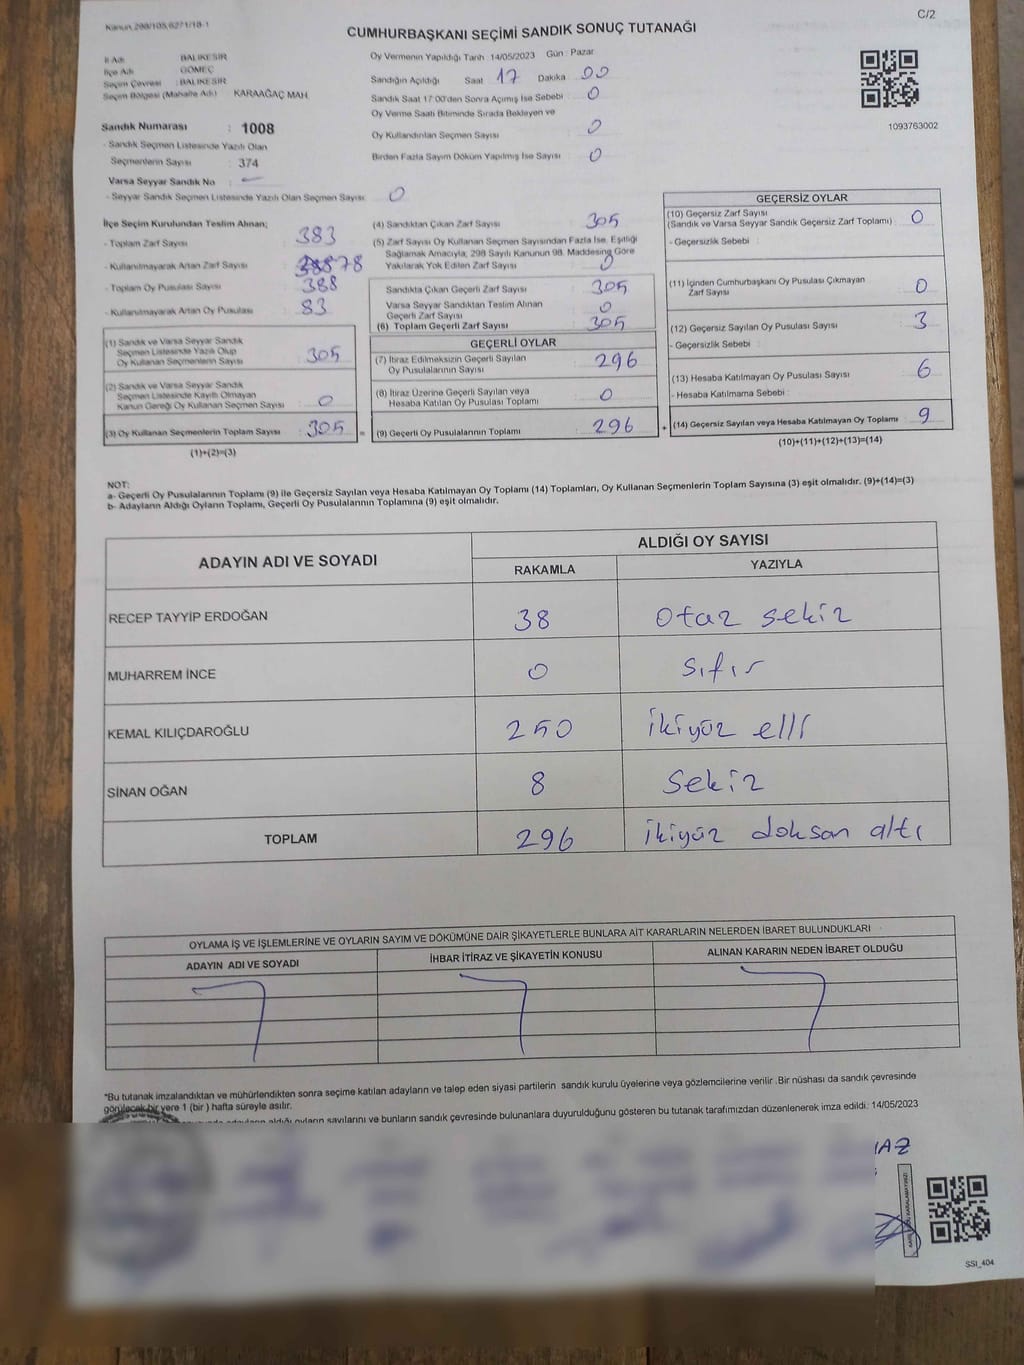 Kanun 298/105,6271/18-1
C/2
CUMHURBAŞKANI SEÇİMİ SANDIK SONUÇ TUTANAĞI
İl Adı : BALIKESİR
İlçe Adı : GÖMEÇ
Seçim Çevresi : BALIKESİR
Seçim Bölgesi (Mahalle Adı) : KARAAĞAÇ MAH.
Sandık Numarası : 1008
- Sandık Seçmen Listesinde Yazılı Olan
Seçmenlerin Sayısı : 374
Varsa Seyyar Sandık No : -
- Seyyar Sandık Seçmen Listesinde Yazılı Olan Seçmen Sayısı: 0
Oy Vermenin Yapıldığı Tarih 14/05/2023 Gün : Pazar
Sandığın Açıldığı Saat : 17 Dakika : 00
Sandık Saat 17:00'den Sonra Açımış İse Sebebi : 0
Oy Verme Saati Bitiminde Sırada Bekleyen ve
Oy Kullandırılan Seçmen Sayısı : 0
Birden Fazla Sayım Döküm Yapılmış İse Sayısı : 0
1093763002
İlçe Seçim Kurulundan Teslim Alınan;
- Toplam Zarf Sayısı : 383
- Kullanılmayarak Artan Zarf Sayısı : 78
- Toplam Oy Pusulası Sayısı : 388
- Kullanılmayarak Artan Oy Pusulası : 83
(1) Sandık ve Varsa Seyyar Sandık
Seçmen Listesinde Yazılı Olup
Oy Kullanan Seçmenlerin Sayısı : 305
(2) Sandık ve Varsa Seyyar Sandık
Seçmen Listesinde Kayıtlı Olmayan
Kanun Gereği Oy Kullanan Seçmen Sayısı : 0
(3) Oy Kullanan Seçmenlerin Toplam Sayısı : 305 =
(1)+(2)=(3)
(4) Sandıktan Çıkan Zarf Sayısı : 305
(5) Zarf Sayısı Oy Kullanan Seçmen Sayısından Fazla İse, Eşitliği
Sağlamak Amacıyla; 298 Sayılı Kanunun 98. Maddesine Göre
Yakılarak Yok Edilen Zarf Sayısı : 0
Sandıkta Çıkan Geçerli Zarf Sayısı : 305
Varsa Seyyar Sandıktan Teslim Alınan
Geçerli Zarf Sayısı : 0
(6) Toplam Geçerli Zarf Sayısı : 305
GEÇERLİ OYLAR
(7) İtiraz Edilmeksizin Geçerli Sayılan
Oy Pusulalarının Sayısı : 296
(8) İtiraz Üzerine Geçerli Sayılan veya
Hesaba Katılan Oy Pusulası Toplamı : 0
(9) Geçerli Oy Pusulalarının Toplamı : 296 +
GEÇERSİZ OYLAR
(10) Geçersiz Zarf Sayısı
(Sandık ve Varsa Seyyar Sandık Geçersiz Zarf Toplamı) : 0
- Geçersizlik Sebebi :
(11) İçinden Cumhurbaşkanı Oy Pusulası Çıkmayan
Zarf Sayısı : 0
(12) Geçersiz Sayılan Oy Pusulası Sayısı : 3
- Geçersizlik Sebebi :
(13) Hesaba Katılmayan Oy Pusulası Sayısı : 6
- Hesaba Katılmama Sebebi :
(14) Geçersiz Sayılan veya Hesaba Katılmayan Oy Toplamı : 9
(10)+(11)+(12)+(13)=(14)
NOT:
a- Geçerli Oy Pusulalarının Toplamı (9) ile Geçersiz Sayılan veya Hesaba Katılmayan Oy Toplamı (14) Toplamları, Oy Kullanan Seçmenlerin Toplam Sayısına (3) eşit olmalıdır. (9)+(14)=(3)
b- Adayların Aldığı Oyların Toplamı, Geçerli Oy Pusulalarının Toplamına (9) eşit olmalıdır.
ADAYIN ADI VE SOYADI
ALDIĞI OY SAYISI
RAKAMLA YAZIYLA
RECEP TAYYİP ERDOĞAN 38 Otuz sekiz
MUHARREM İNCE 0 Sıfır
KEMAL KILIÇDAROĞLU 250 ikiyüz elli
SİNAN OĞAN 8 Sekiz
TOPLAM 296 ikiyüz doksan altı
OYLAMA İŞ VE İŞLEMLERİNE VE OYLARIN SAYIM VE DÖKÜMÜNE DAİR ŞİKAYETLERLE BUNLARA AİT KARARLARIN NELERDEN İBARET BULUNDUKLARI
ADAYIN ADI VE SOYADI İHBAR İTİRAZ VE ŞİKAYETİN KONUSU ALINAN KARARIN NEDEN İBARET OLDUĞU
*Bu tutanak imzalandıktan ve mühürlendikten sonra seçime katılan adayların ve talep eden siyasi partilerin sandık kurulu üyelerine veya gözlemcilerine verilir .Bir nüshası da sandık çevresinde
görülecek bir yere 1 (bir ) hafta süreyle asılır.
adayların aldığı oyların sayılarını ve bunların sandık çevresinde bulunanlara duyurulduğunu gösteren bu tutanak tarafımızdan düzenlenerek imza edildi. 14/05/2023
SSI_404